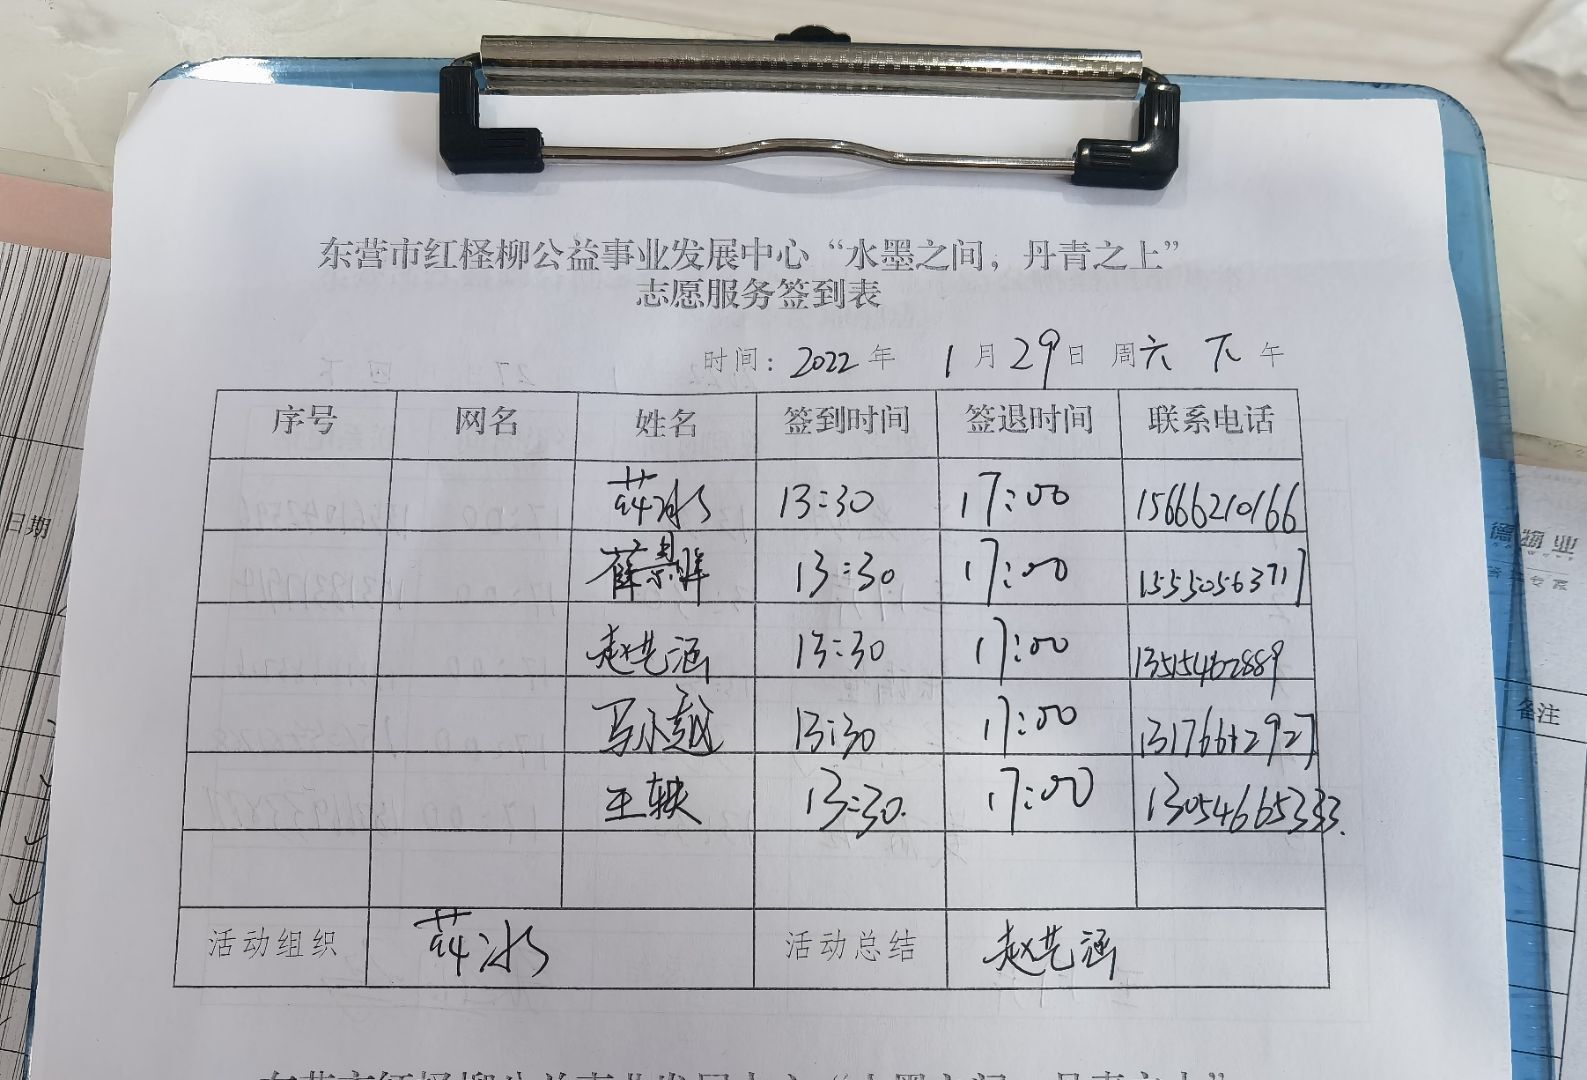 东营市红柽柳公益事业发展中心“水墨之间，丹青之上”
志愿服务签到表
时间：2022年 1月29日 周六 下午
序号 网名 姓名 签到时间 签退时间 联系电话
薛冰 13:30 17:00 15666210166
薛景祥 13:30 17:00 15550563717
赵艺涵 13:30 17:00 13515462889
马小越 13:30 17:00
王轶 13:30. 17:00 13054665333.
活动组织 薛冰 活动总结 赵艺涵
日期
德物业
备注